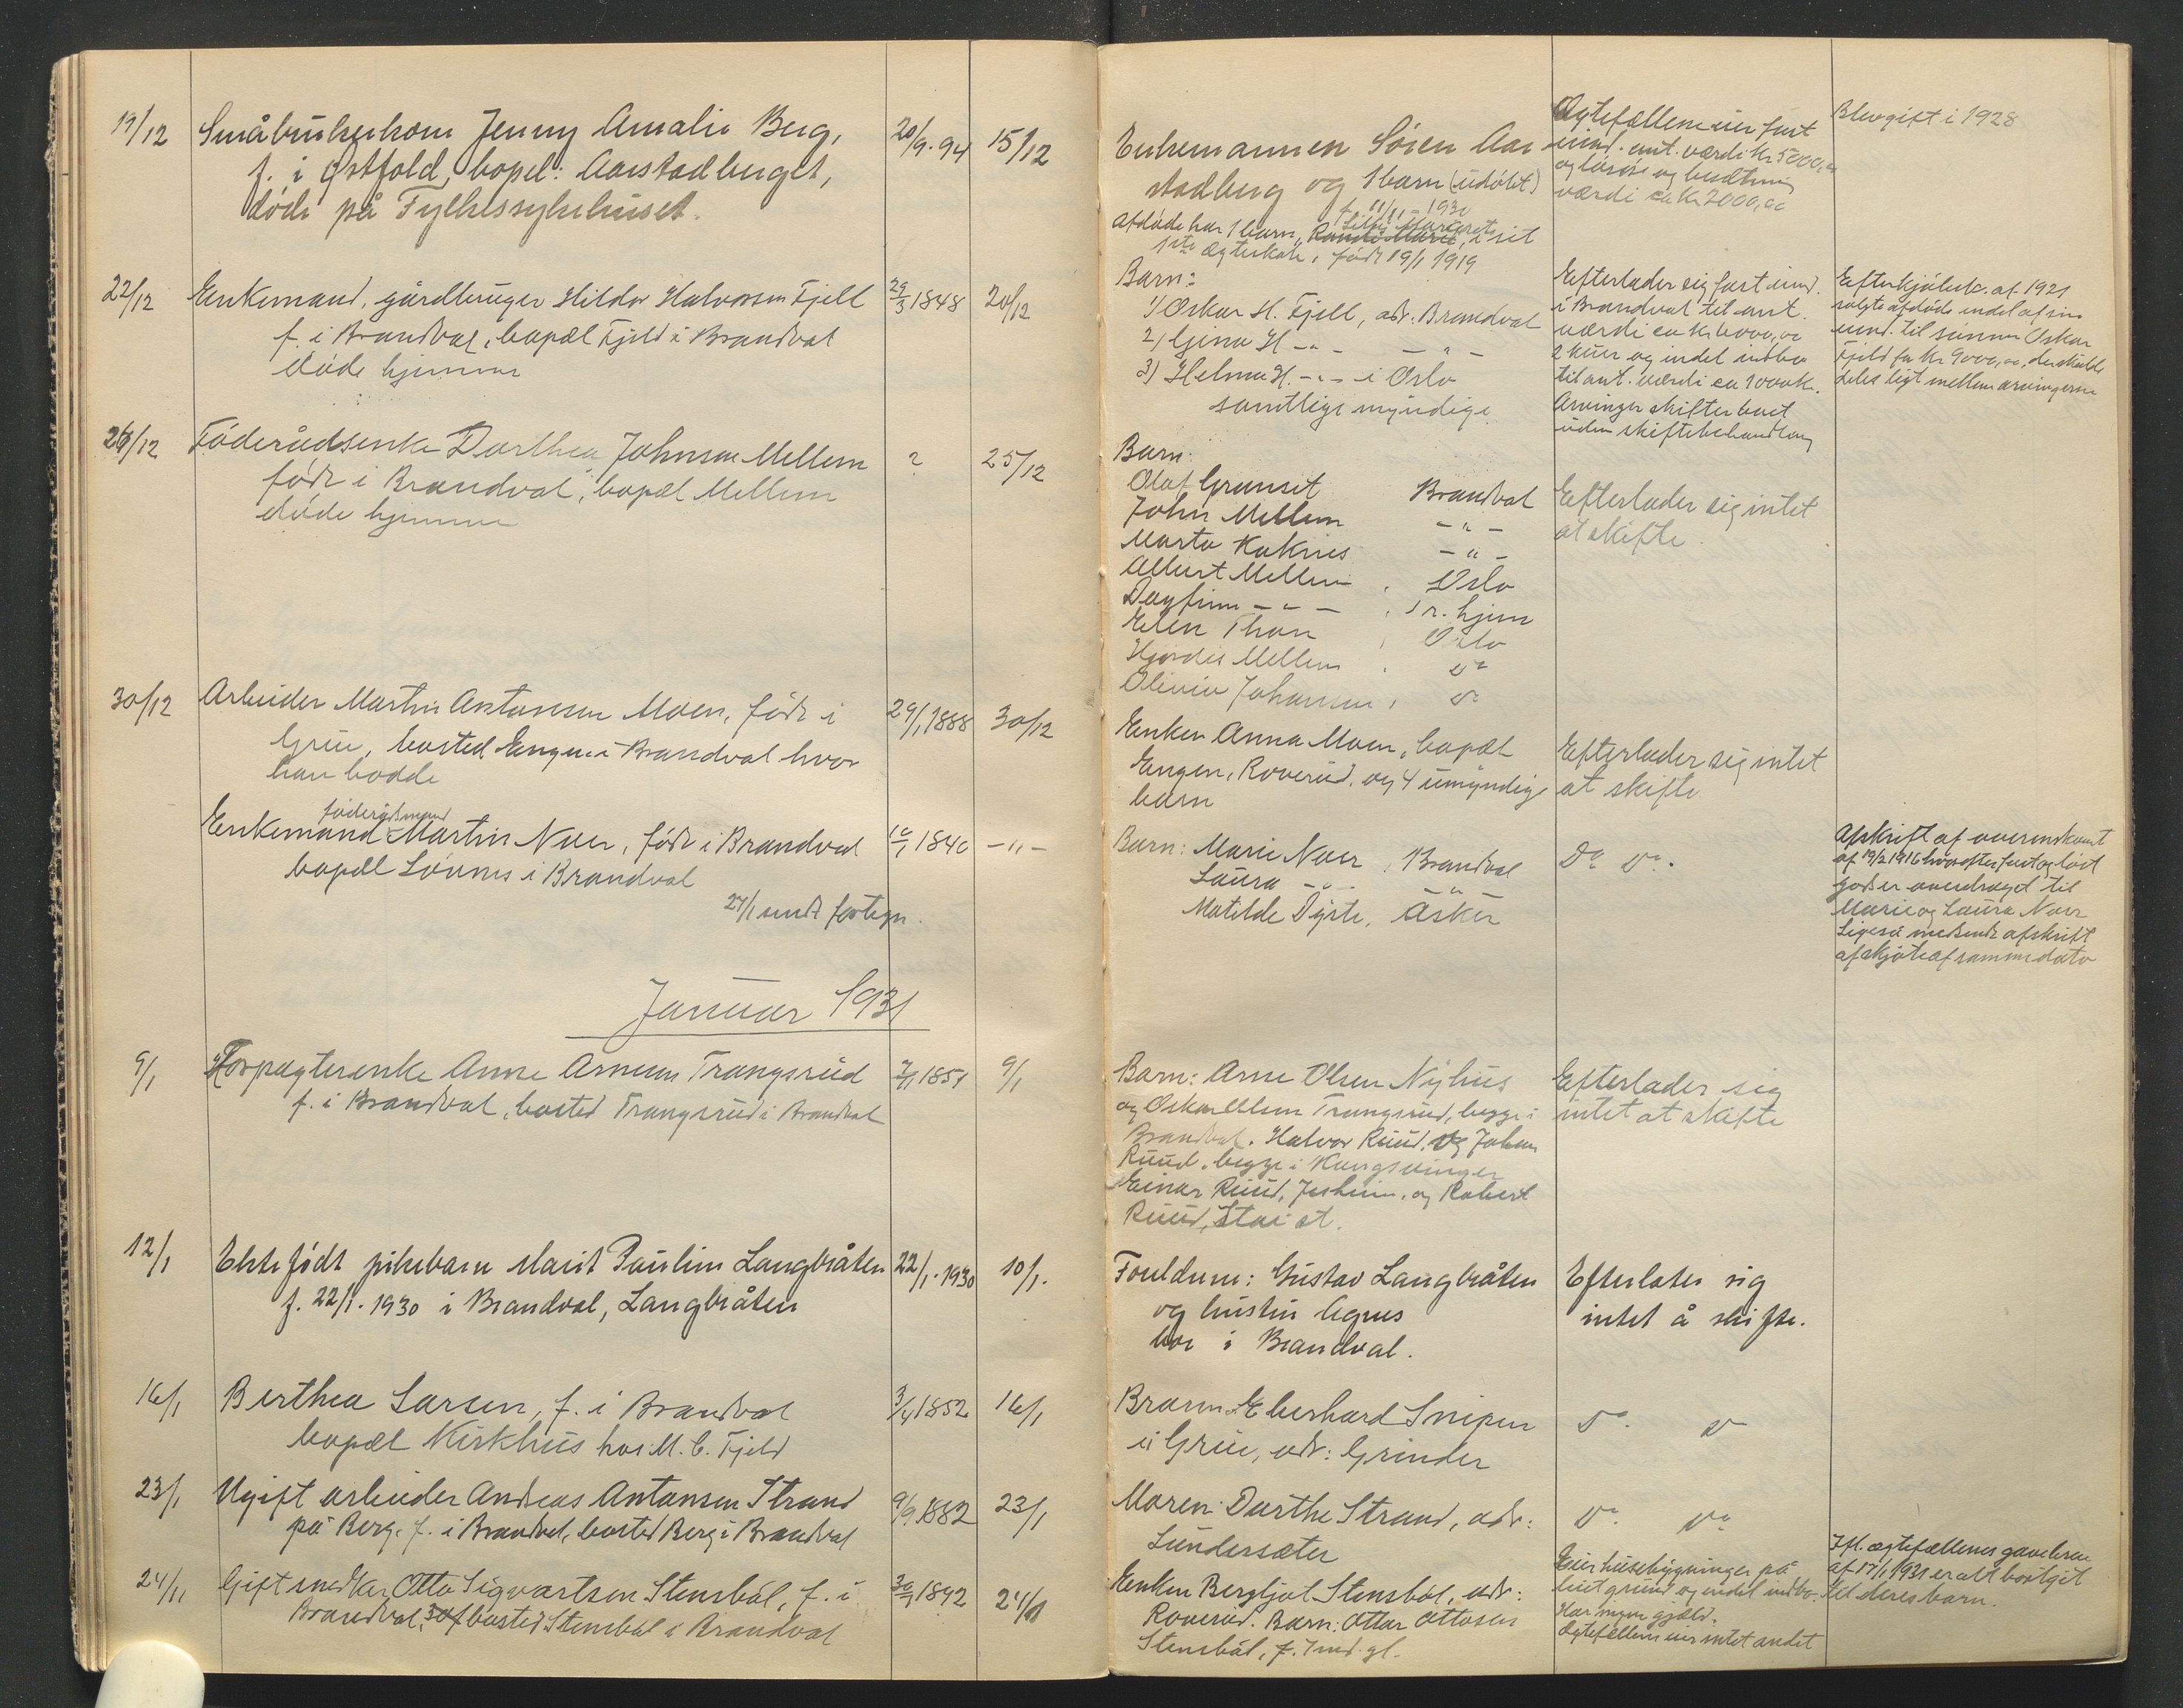 19/12 Småbrukerkone Jenny Amalie Berg, 20/9.94 15/12
f. i Østfold, bopel: Aarstadberget,
døde på Fylkessykehuset.
22/12 Enkemand, gårdbruger Hildor Halvorsen Fjell 29/3 1848 20/12
f. i Brandval, bopæl Fjeld i Brandval
døde hjemme
26/12 Føderådsenke Dorthea Johnsen Mellem ? 25/12
født i Brandval, bopæl Mellem
døde hjemme
30/12 Arbeider Martin Antonsen Moen, født i 29/1 1888 30/12
Grue, bosted Engen i Brandval hvor
han bodde
føderådsmand
Enkemand Martin Noer, født i Brandval 10/1 1840 -"-
bopæl Løvnes i Brandval
27/1 sendt fortegn.
Januar 1931
9/1 Forpagterenke Anne Arnesen Trangsrud 7/1 1851 9/1
f. i Brandval, bosted Trangsrud i Brandval
12/1 Ektefødt pikebarn Marit Pauline Langbråten 22/1.1930 10/1.
f. 22/1.1930 i Brandval, Langbråten
16/1 Berthea Larsen, f. i Brandval 3/4 1852 16/1
bopæl Kirkhus hos M. C. Fjeld
23/1 Ugift arbeider Andreas Antonsen Strand 9/9 1882 23/1
på Berg, f. i Brandval, bosted Berg i Brandval
24/1 Gift snedker Otto Sigvartsen Stensbøl, f. i 30/7 1842 24/1
Brandval, bosted Stensbøl i Brandval
Enkemannen Søren Aar-
stadberg og 1 barn (udøbt)
f. 11/11 - 1930
Afdøde har 1 barn, Margrete, i sit
1ste ægteskab, født 19/1 1919
Ægtefællene eier fast
eiend. ant. værdi kr. 5000,00
og løsøre og besætning
værdi ca kr 2000,00
Blev gift i 1928
Barn:
1) Oskar H. Fjell, adr. Brandval
2) Gina H. -"- -"-
3) Helma H. -"- i Oslo
samtlige myndige
Efterlader sig fast eiend.
i Brandval til ant.
værdi ca kr 6000,00
2 kuer og indel indbo
til ant. værdi ca 1000 k.
Arvinger skifter boet
uden skiftebehandling
Efter kjøbek. af 1921
solgte afdøde indel af sin
eiend. til sønnen Oskar
Fjeld for kr 9000,00, der skulde
deles ligt mellem arvingerne
Barn:
Olaf Grunset Brandval
John Mellem -"-
Marta Kaknes -"-
Albert Mellem, Oslo
Dagfinn -"-, Tr.hjem
Elen Thon, Oslo
Hjørdis Mellem, do
Olivia Johansen, do
Efterlader sig intet
at skifte.
Enken Anna Moen, bopæl
Engen, Roverud, og 4 umyndige
barn
Efterlader sig intet
at skifte
Barn: Marie Noer, Brandval
Laura -"- -"-
Matilde Dyste, Asker
Do do.
Afskrift af overenskomst
af 19/2 1916 hvorefter fast og løst
gods er overdraget til
Marie og Laura Noer
Ligeså medsendt afskrift
af skjøte af samme dato
Barn: Arne Olsen Nyhus
og Oskar Olsen Trangsrud, begge i
Brandval. Halvor Ruud og Johan
Ruud, begge i Kongsvinger
Einar Ruud, Jessheim, og Robert
Ruud, Stai st.
Efterlader sig
intet at skifte
Foreldrene: Gustav Langbråten
og hustru Agnes
bor i Brandval.
Efterlater sig
intet å skifte.
Broren Eberhard Snipen
i Grue, adr: Grinder
Do. do
Maren Dorthe Strand, adr:
Lundersæter
Do. do
Enken Bergljot Stensbøl, adr:
Roverud. Barn: Ottar Ottosen
Stensbøl, f.
Eier husebygninger på
leiet grund og indel indbo.
Har ingen gjæld.
Ægtefellene eier intet andet
Ifl. ægtefællenes gavebrev
af 17/1 1931 er alt bortgit
til deres barn.